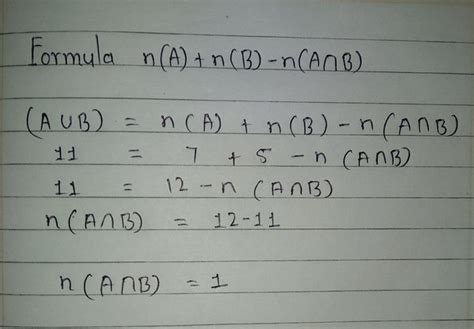 Formula n(A) + n(B) - n(A∩B)
(A∪B) = n(A) + n(B) - n(A∩B)
11 = 7 + 5 - n(A∩B)
11 = 12 - n(A∩B)
n(A∩B) = 12-11
n(A∩B) = 1